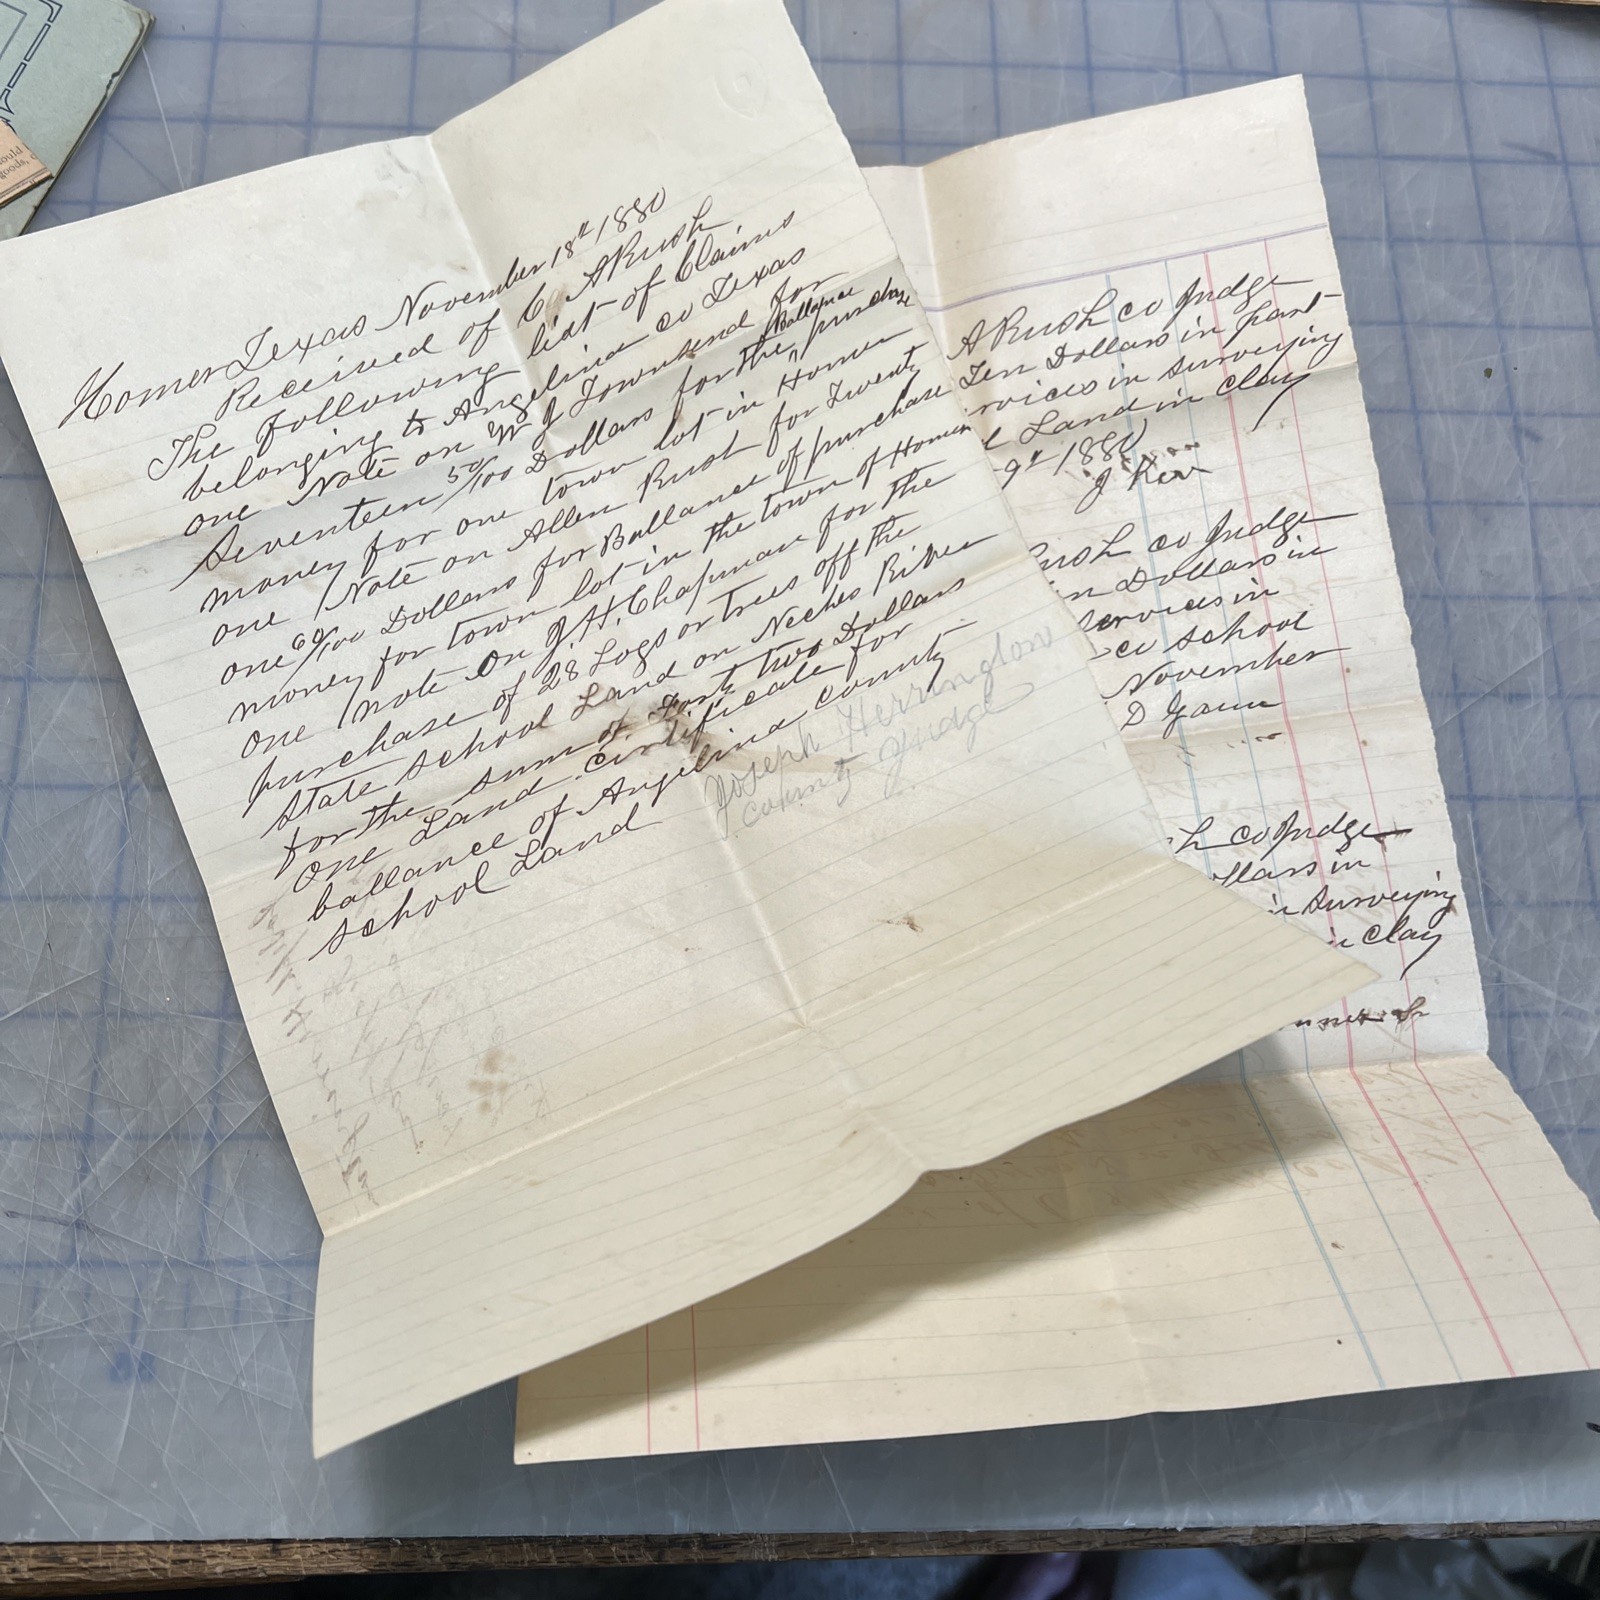 Homer Texas November 18th 1880
Received of C A Rush
The following list of Claims
belonging to Angelina co Texas
one Note on W J Townsend for
Seventeen 50/100 Dollars for the Ballance purchase
money for one town lot in Homer
one Note on Allen Rust for Twenty
one 60/100 Dollars for Ballance of purchase
money for town lot in the town of Homer
one note on J. H. Chapman for the
purchase of 28 Logs or trees off the
State school Land on Neches River
for the sum of Forty two Dollars
one Land certificate for
ballance of Angelina county
school Land
Joseph Herrington
County Judge
A Rush co Judge
Ten Dollars in part
rvices in surveying
l Land in Clay
9th 1880
J
Rush co Judge
n Dollars in
services in
co school
November
D Gann
h co Judge
ollars in
in Surveying
in Clay
Sr
ould
goods,